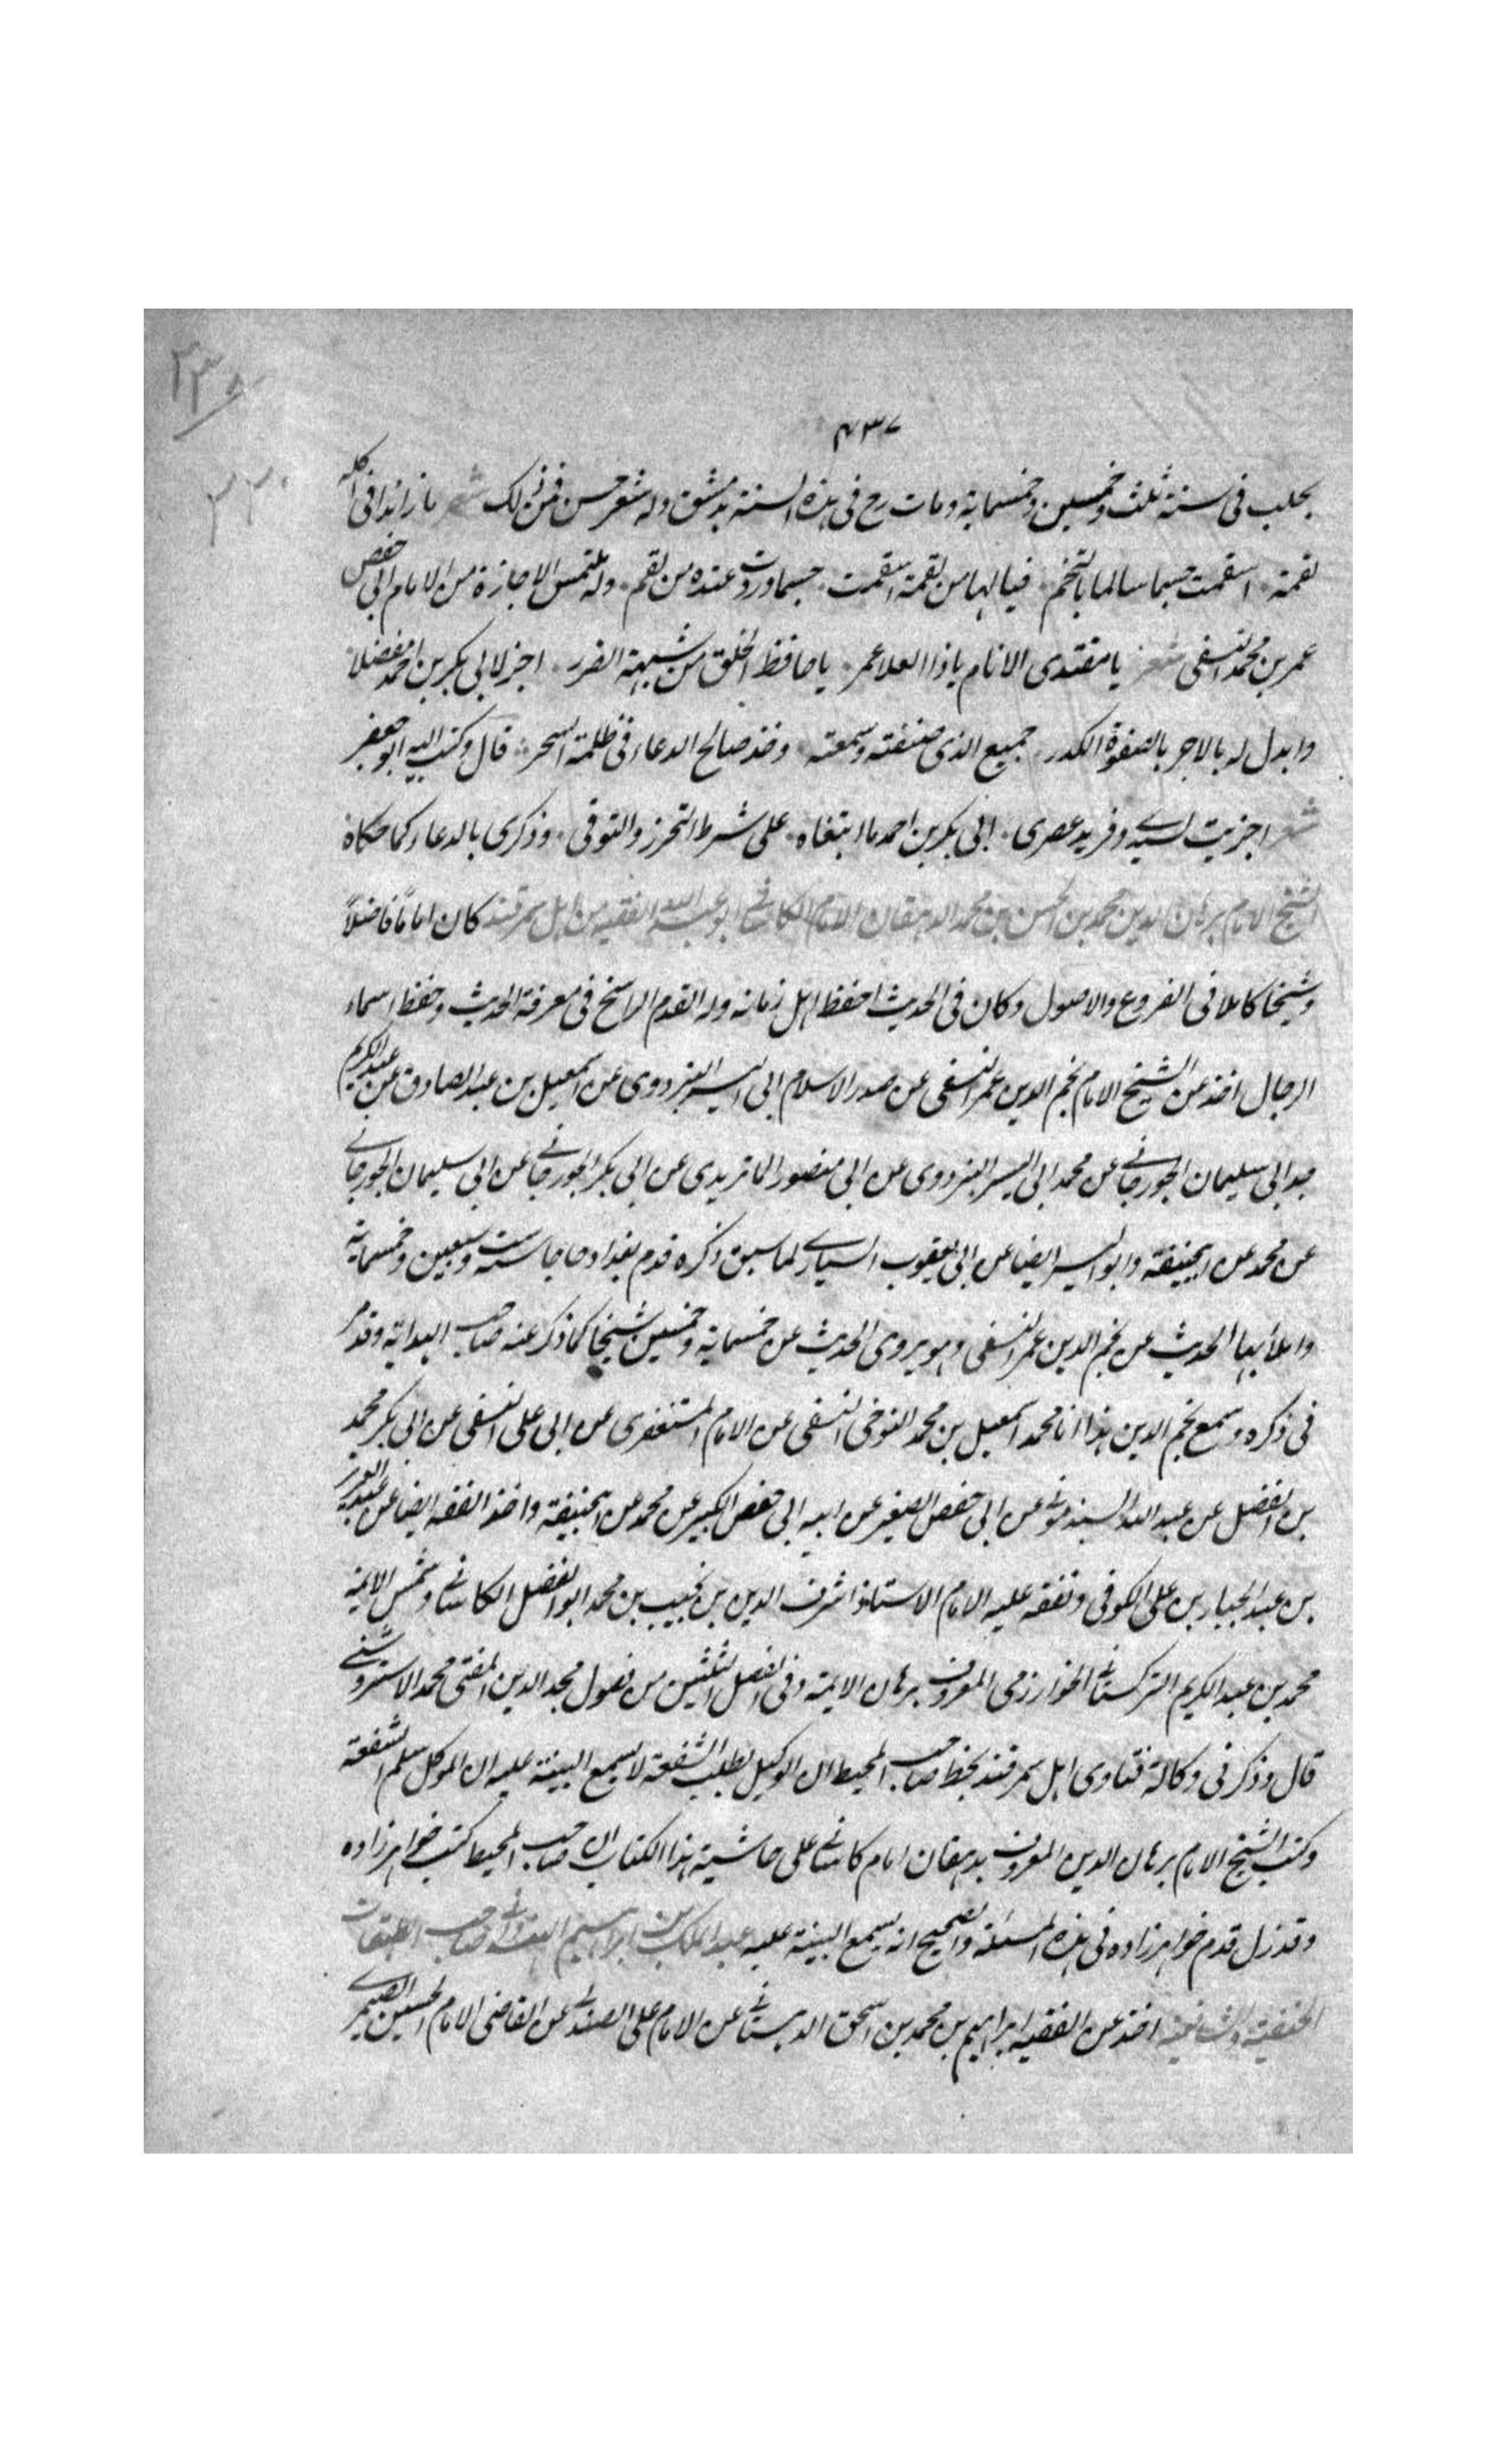 ٤٣٧
بحلب فى سنة ثلث وخمسين وخمسماية ومات رح فى هذه السنة بدمشق وله شعر حسن فمن ذلك شعر يا زائدا فى اكله
لقمة اسقمت جسما سالما بالتخم فيالها من لقمة اسقمت جسما وردت عنده من نقم وله ملتمس الاجازة من الامام ابى حفص
عمر بن محمد النسفى شعر يا مقتدى الانام ياذا العلا عمر يا حافظ الخلق من شبهة الضرر اجز لابى بكر بن احمد مفضلا
وابدل له بالاجر بالصفوة الكدر جميع الذى صنفته وسمعته وخذ صالح الدعاء فى ظلمة السحر قال وكتب اليه ابو حفص
شعر اجزيت لسيدى وفريد عصرى ابى بكر بن احمد ما ابتغاه على شرط التحرز والتوقى وذكرى بالدعاء كما حكاه
الشيخ الامام برهان الدين محمد بن الحسن بن محمد الدهقان الامام الكاسانى ابو عبد الله الفقيه من اهل سمرقند كان اماما فاضلاً
وشيخا كاملا فى الفروع والاصول وكان فى الحديث احفظ اهل زمانه وله القدم الراسخ فى معرفة الحديث وحفظ اسماء
الرجال اخذ عن الشيخ الامام نجم الدين عمر النسفى عن صدر الاسلام ابى اليسر البزدوى عن اسمعيل بن عبد الصادق عن عبد الكريم
جد ابى سليمان الجورجانى عن محمد ابى اليسر البزدوى عن ابى منصور الماتريدى عن ابى بكر الجورجانى عن ابى سليمان الجورجانى
عن محمد عن ابيحنيفة وابو اليسر ايضا عن ابى يعقوب السيارى لما سبق ذكره قدم بغداد حاجا سنة ست وسبعين وخمسماية
واملأ بها الحديث عن نجم الدين عمر النسفى وهو يروى الحديث عن خمسماية وخمسين شيخا كما ذكر عنه صاحب الهداية وقد مر
فى ذكره وسمع نجم الدين هذا انا محمد اسمعيل بن محمد النوحى النسفى عن الامام المستغفرى عن ابى على النسفى عن ابى بكر محمد
بن الفضل عن عبد الله السبذمونى عن ابى حفص الصغير عن ابيه ابى حفص الكبير عن محمد عن ابيحنيفة واخذ الفقه ايضا عن عبد العزيز
بن عبد الجبار بن على الكوفى وتفقه عليه الامام الاستاذ اشرف الدين بن نجيب بن محمد ابو الفضل الكاسانى وشمس الايمة
محمد بن عبد الكريم التركستانى الخوارزمى المعروف ببرهان الايمة وفى الفصل الثلثين من فصول مجد الدين المفتى محمد الاستروشنى
قال وذكر فى وكالة فتاوى اهل سمرقند بخط صاحب المحيط ان الوكيل بطلب الشفعة لا يسمع البينة عليه ان الموكل سلم الشفعة
وكتب الشيخ الامام برهان الدين المعروف بدهقان امام كاسانى على حاشية هذا الكتاب ان صاحب المحيط كتب خواهر زاده
وقد زل قدم خواهر زاده فى هذه المسئلة والصحيح انه يسمع البينة عليه عبد الملك بن ابراهيم الهمدانى صاحب الطبقات
الحنفية والشافعية اخذ عن الفقيه ابراهيم بن محمد بن اسحق الدهستانى عن الامام على الصندلى عن القاضى الامام الحسين الصيمرى